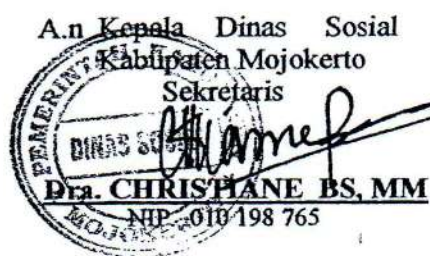 A.n Kepala Dinas Sosial
Kabupaten Mojokerto
Sekretaris
DINAS
Dra. CHRISTIANE BS, MM
NIP. 010 198 765